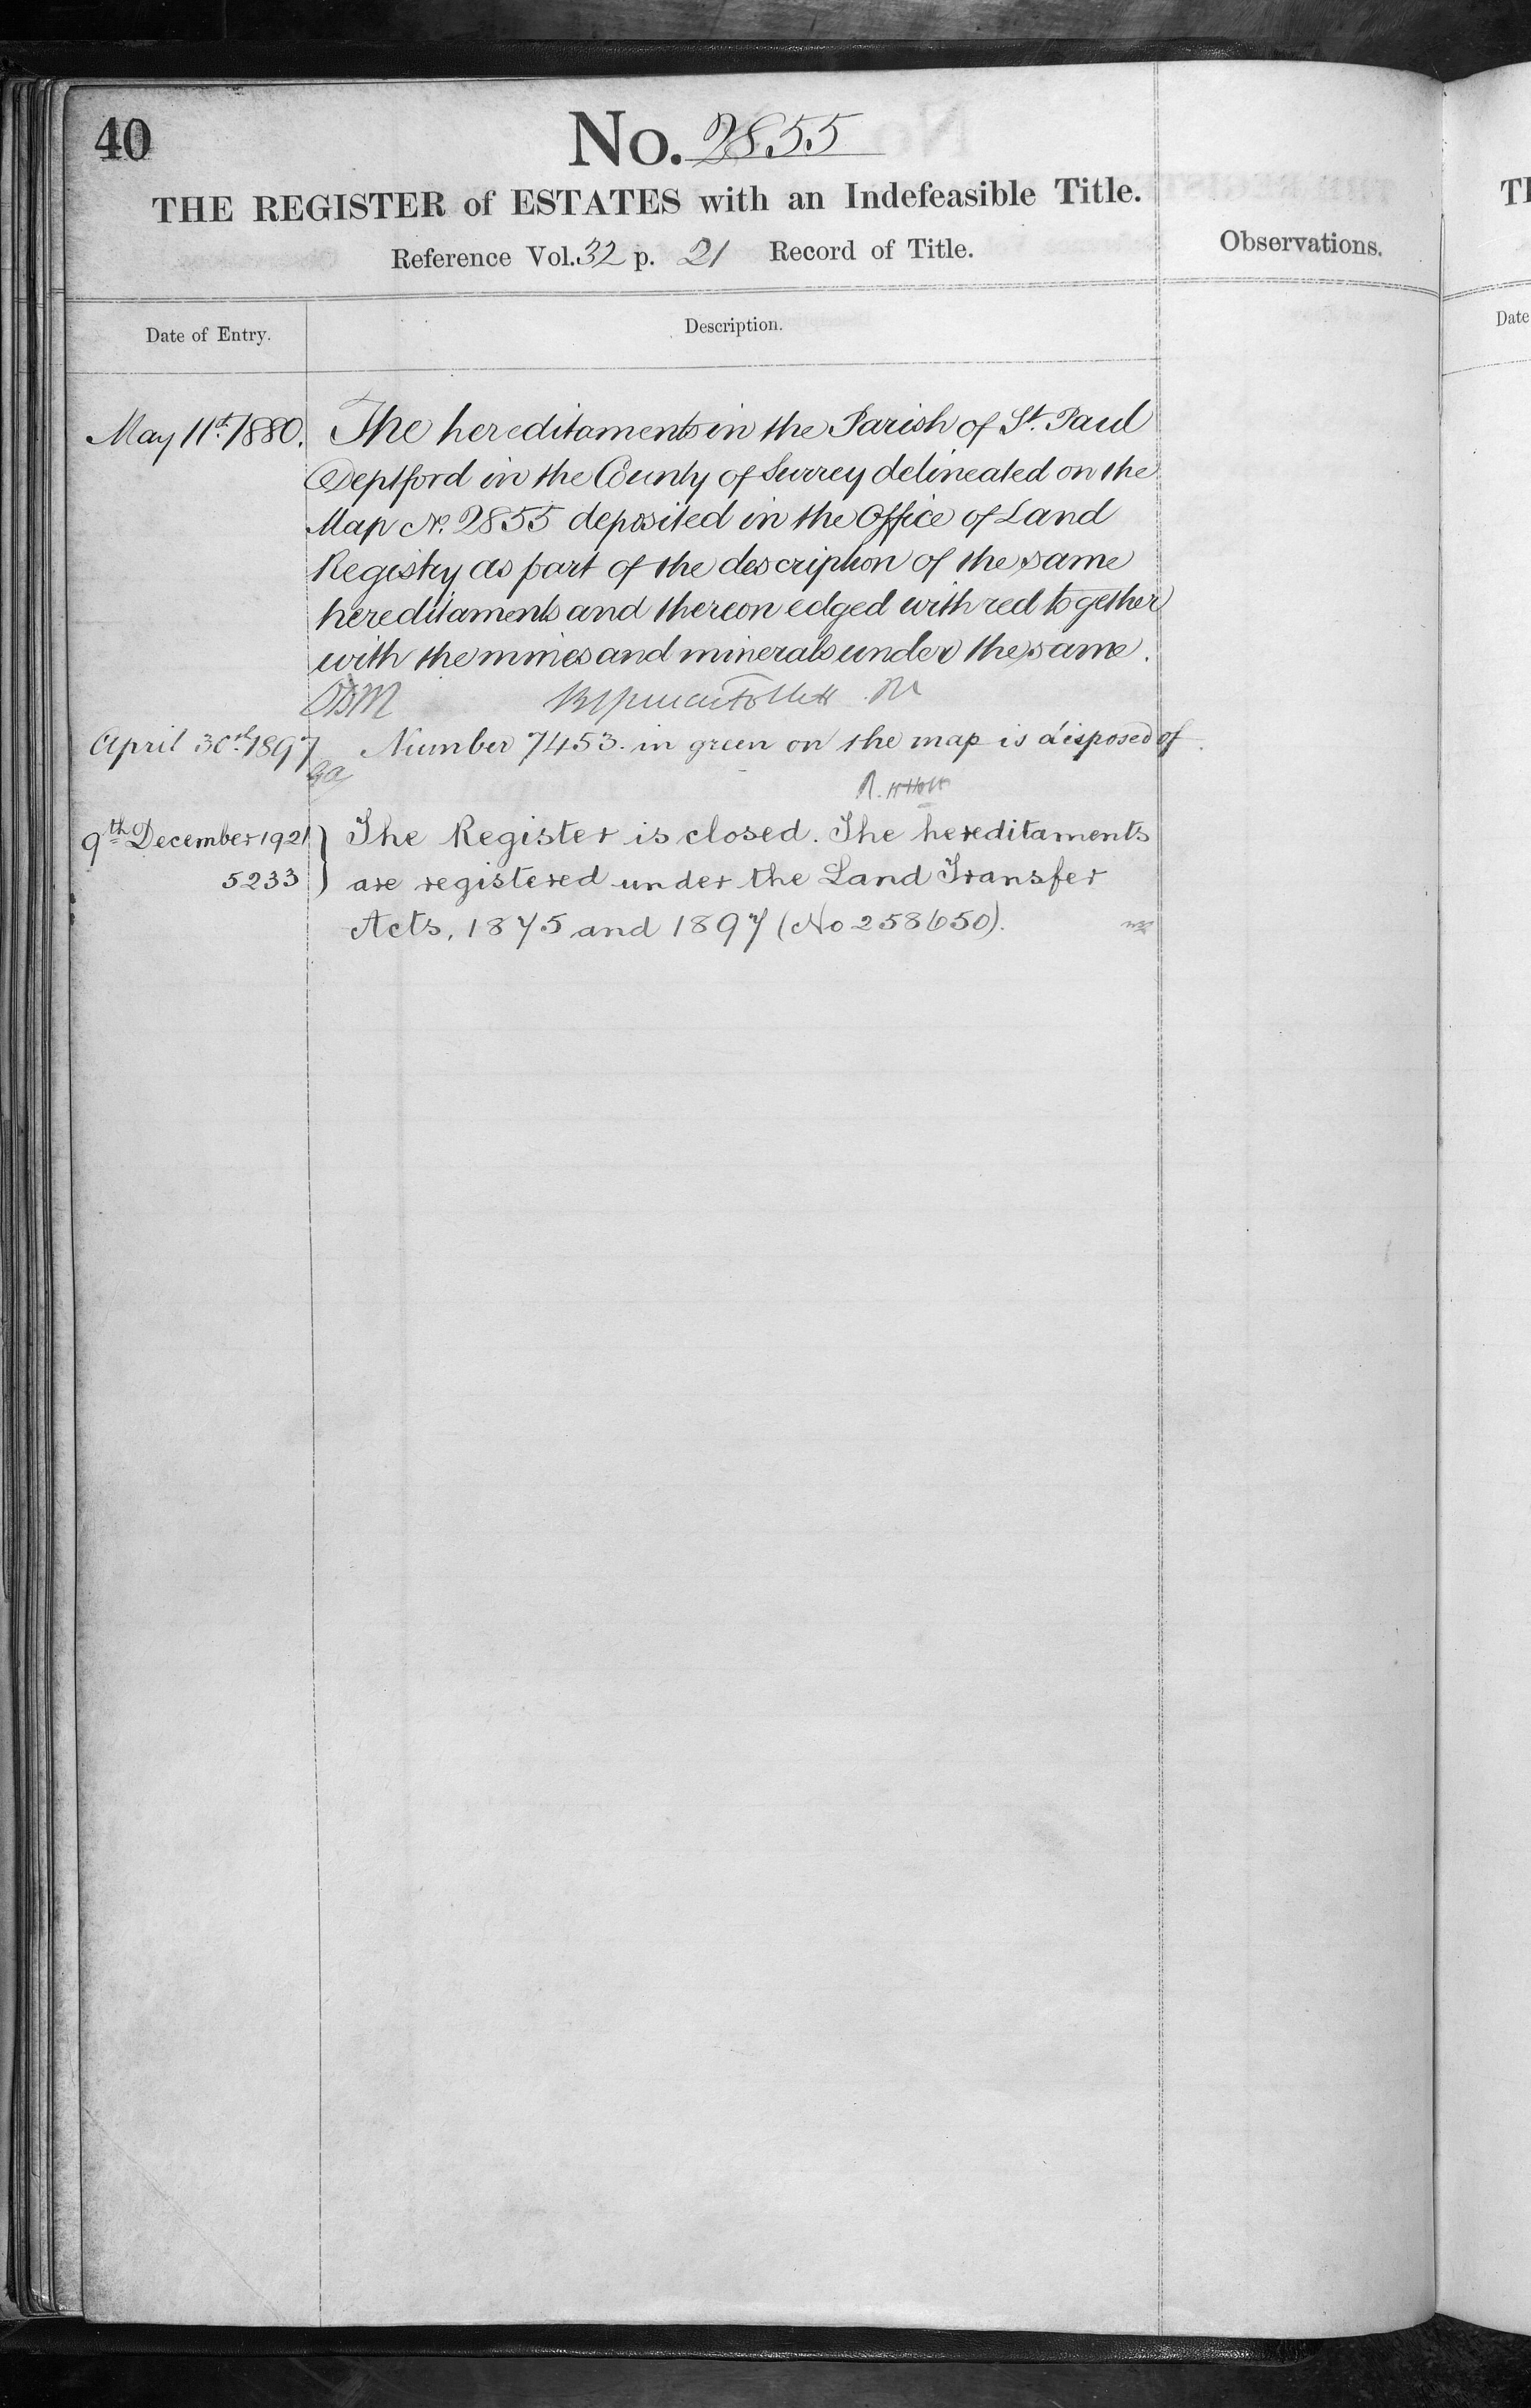 40
No. 2855
THE REGISTER of ESTATES with an Indefeasible Title.
Reference Vol. 32 p. 21 Record of Title.
Observations.
Date of Entry.
Description.
May 11th 1880. The hereditaments in the Parish of St. Paul
Deptford in the County of Surrey delineated on the
Map No. 2855 deposited in the Office of Land
Registry as part of the description of the same
hereditaments and thereon edged with red together
with the mines and minerals under the same.
April 30th 1897 Number 7453 in green on the map is disposed of.
9th December 1921 } The Register is closed. The hereditaments
5233 are registered under the Land Transfer
Acts, 1875 and 1897 (No 258650).
Date